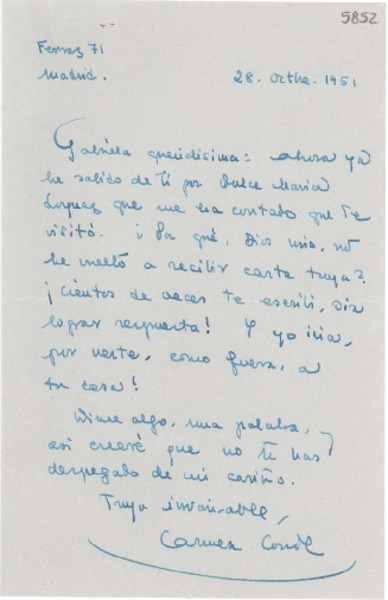 5852
Ferraz 71
Madrid.
28. Octbre. 1951
Gabriela queridísima: ahora ya
he sabido de ti por Dulce María
Loynaz que me ha contado que te
visitó. ¿Por qué, Dios mío, no
he vuelto a recibir carta tuya?
¡Cientos de veces te escribí, sin
lograr respuesta! Y yo iría,
por verte, como fuera, a
tu casa!
Dime algo, una palabra, y
así creeré que no te has
despegado de mi cariño.
Tuya invariable,
Carmen Conde